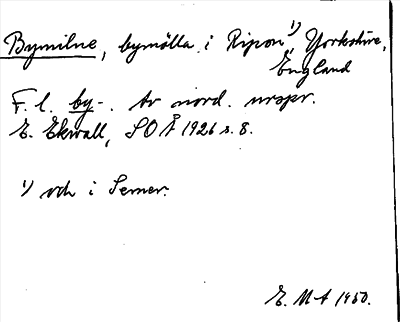 Bymilne, bymölla i Ripon ¹), Yorkshire,
England
F. l. by-. Av nord. urspr.
E. Ekwall, SOÅ 1926 s. 8.
¹) och i Semer.
E. M-t 1950.